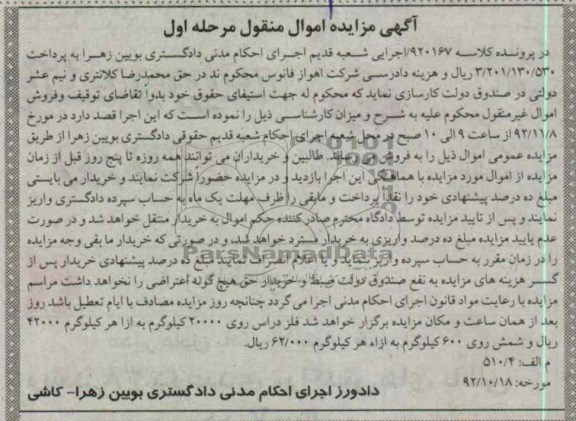 آگهی مزایده اموال منقول مرحله اول
در پرونده کلاسه ۹۲۰۱۶۷/اجرایی شعبه قدیم اجرای احکام مدنی دادگستری بویین زهرا به پرداخت
۳/۲۰۱/۱۳۰/۵۳۰ ریال و هزینه دادرسی شرکت اهواز فانوس محکوم ند در حق محمدرضا کلانتری و نیم عشر
دولتی در صندوق دولت کارسازی نماید که محکوم له جهت استیفای حقوق خود بدوا تقاضای توقیف وفروش
اموال غیرمنقول محکوم علیه به شرح و میزان کارشناسی ذیل را نموده است که این اجرا قصد دارد در مورخ
۹۲/۱۱/۸ از ساعت ۹ الی ۱۰ صبح در محل شعبه اجرای احکام شعبه قدیم حقوقی دادگستری بویین زهرا از طریق
مزایده عمومی اموال ذیل را به فروش می رساند. طالبین و خریداران می توانند همه روزه تا پنج روز قبل از زمان
مزایده از اموال مورد مزایده با هماهنگی این اجرا بازدید و در مزایده حضورا شرکت نمایند و خریدار می بایستی
مبلغ ده درصد پیشنهادی خود را نقدا پرداخت و مابقی را ظرف مهلت یک ماه به حساب سپرده دادگستری واریز
نمایند و پس از تایید مزایده توسط دادگاه محترم صادرکننده حکم اموال به خریدار منتقل خواهد شد و در صورت
عدم تایید مزایده مبلغ ده درصد واریزی به خریدار مسترد خواهد شد. و در صورتی که خریدار ما بقی وجه مزایده
را در زمان مقرر به حساب سپرده واریز ننماید و یا اعلام انصراف نمایند مبلغ ده درصد پیشنهادی خریدار پس از
کسر هزینه های مزایده به نفع صندوق دولت ضبط و خریدار حق هیچ گونه اعتراضی را نخواهد داشت مراسم
مزایده با رعایت مواد قانون اجرای احکام مدنی اجرا می گردد چنانچه روز مزایده مصادف با ایام تعطیل باشد روز
بعد از همان ساعت و مکان مزایده برگزار خواهد شد فلز دراس روی ۲۰۰۰۰ کیلوگرم به ازا هر کیلوگرم ۴۲۰۰۰
ریال و شمش روی ۶۰۰ کیلوگرم به ازاء هر کیلوگرم ۶۲/۰۰۰ ریال.
م الف: ۵۱۰/۴
مورخه: ۹۲/۱۰/۱۸
دادورز اجرای احکام مدنی دادگستری بویین زهرا- کاشی
ParsNamadData